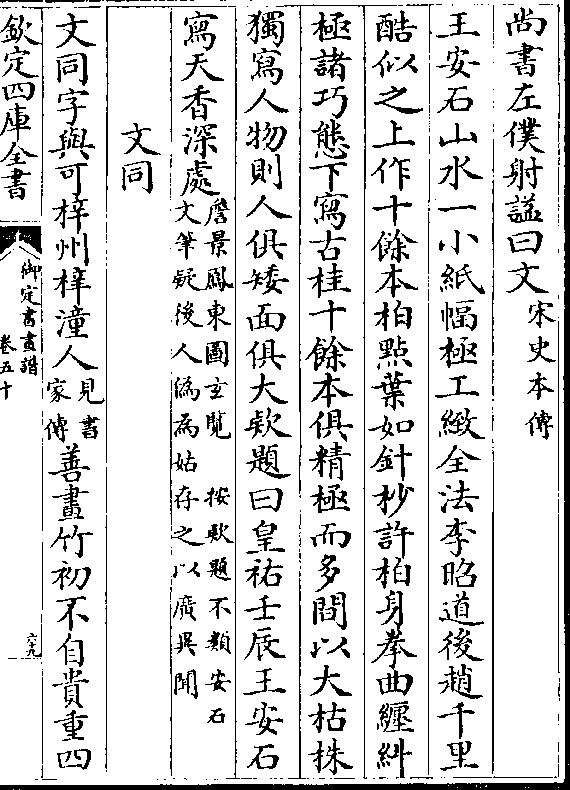 尚書左僕射諡曰文宋史本傳
王安石山水一小紙幅極工緻全法李昭道後趙千里
酷似之上作十餘本柏點葉如針杪許柏身拳曲纏糾
極諸巧態下寫古桂十餘本俱精極而多間以大枯株
獨寫人物則人俱矮面俱大欵題曰皇祐壬辰王安石
寫天香深處
詹景鳳東圖玄覽 按欵題不類安石
文筆疑後人僞為姑存之以廣異聞
文同
文同字與可梓州梓潼人見書家傳善畫竹初不自貴重四
欽定四庫全書
御定書畫譜
卷五十
六九